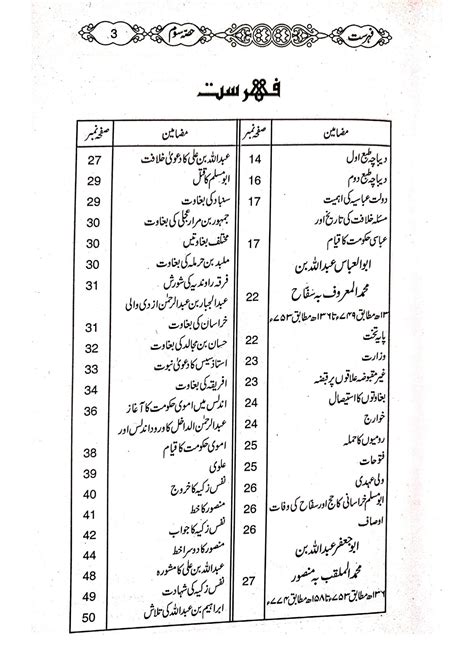 فہرست
حصہ سوم
3
فہرست
مضامین صفحہ نمبر
دیباچہ طبع اول 14
دیباچہ طبع دوم 16
دولت عباسیہ کی اہمیت 17
مسئلہ خلافت کی تاریخ اور
عباسی حکومت کا قیام 17
ابوالعباس عبداللہ بن
محمد المعروف بہ سفاح 22
مطابق ۷۴۹ء تا ۱۳۶ھ مطابق ۷۵۳ء
پایہ تخت 22
وزارت 23
غیر مقبوضہ علاقوں پر قبضہ 23
بغاوتوں کا استیصال 24
خوارج 24
رومیوں کا حملہ 25
فتوحات 25
ولی عہدی 26
ابو مسلم خراسانی کا حج اور سفاح کی وفات 26
اوصاف 26
ابو جعفر عبداللہ بن
محمد الملقب بہ منصور 27
۱۳۶ھ مطابق ۷۵۳ء تا ۱۵۸ھ مطابق ۷۷۴ء
مضامین صفحہ نمبر
عبداللہ بن علی کا دعویٰ خلافت 27
ابو مسلم کا قتل 29
سنباد کی بغاوت 29
جمہور بن مرار عجلی کی بغاوت 30
مختلف بغاوتیں 30
ملبد بن حرملہ کی بغاوت 30
فرقہ راوندیہ کی شورش 31
عبدالجبار بن عبدالرحمٰن ازدی والی
خراسان کی بغاوت 31
حسان بن مجالد کی بغاوت 32
استاذ سیس کا دعویٰ نبوت 33
افریقہ کی بغاوت 34
اندلس میں اموی حکومت کا آغاز 36
عبدالرحمٰن الداخل کا ورود اندلس اور
اموی حکومت کا قیام 38
علوی 39
نفس زکیہ کا خروج 40
منصور کا خط 41
نفس زکیہ کا جواب 42
منصور کا دوسرا خط 44
عبداللہ بن علی کا مشورہ 48
نفس زکیہ کی شہادت 49
ابراہیم بن عبداللہ کی تلاش 50